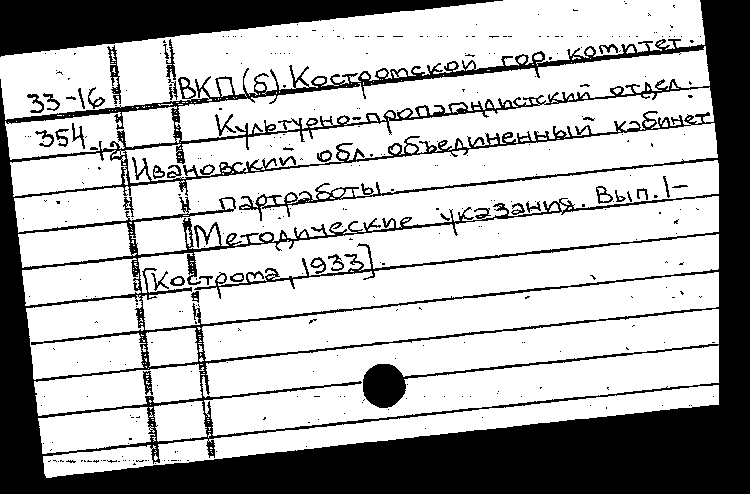 33-16 ВКП(б). Костромской гор. комитет.
354 Культурно-пропагандистский отдел.
+2 Ивановский обл. объединенный кабинет
партработы.
Методические указания. Вып. 1-
[Кострома, 1933].